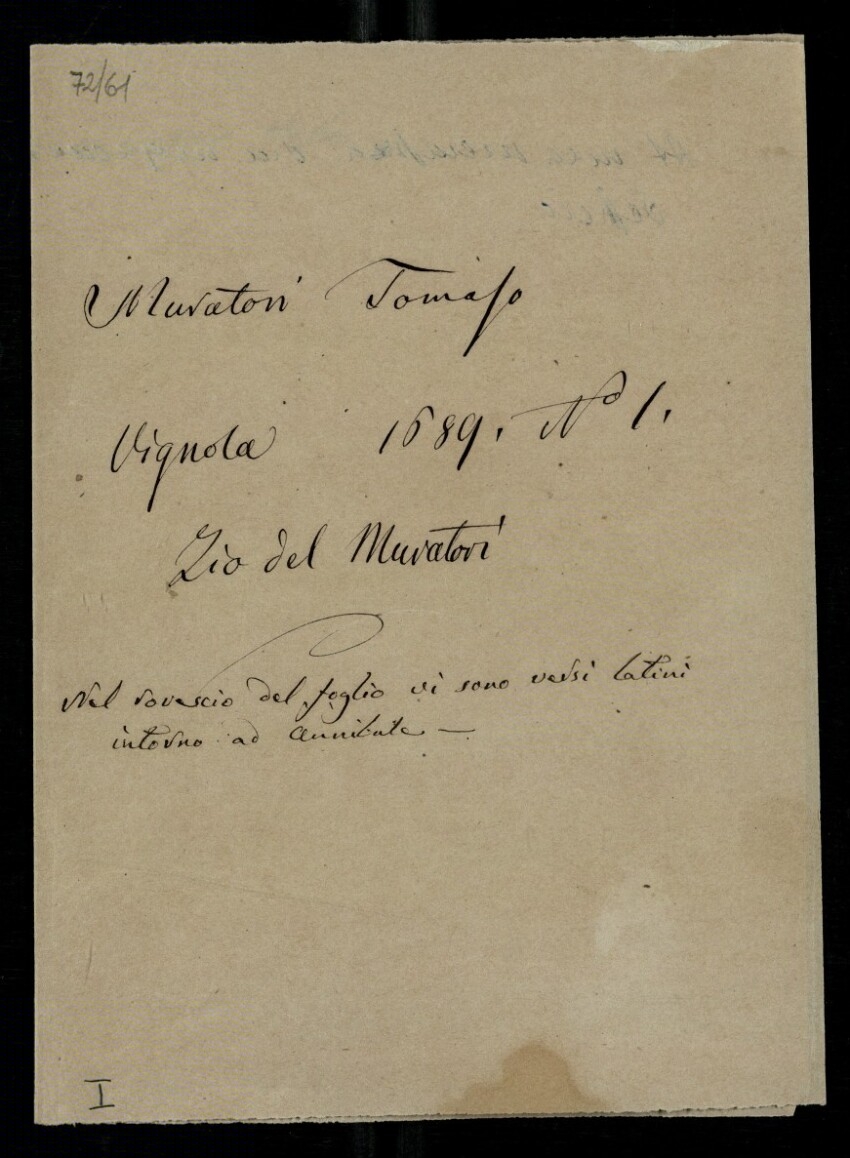 72/61
Muratori Tomaso
Vignola 1689. No 1.
Zio del Muratori
Nel rovescio del foglio vi sono versi latini
intorno ad Annibale —
I